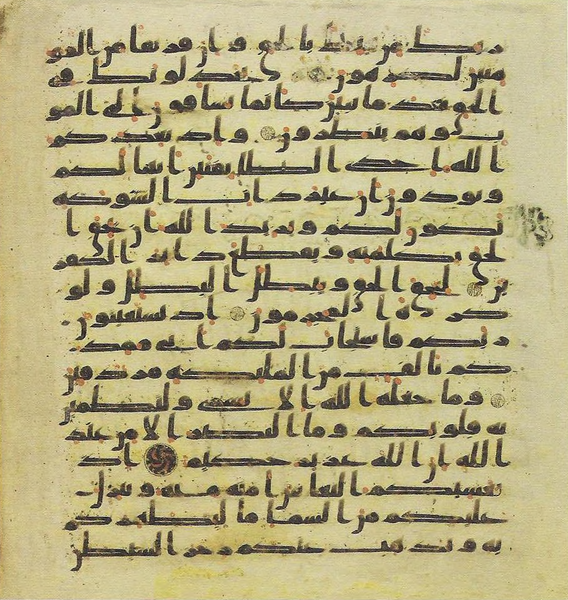 ربك من بيتك بالحق وان فريقا من المؤ
منين لكرهون يجدلونك في
الحق بعد ما تبين كانما يساقون الى المو
ت وهم ينظرون واذ يعدكم
الله احدى الطائفتين انها لكم
وتودون ان غير ذات الشوكة
تكون لكم ويريد الله ان يحق ا
لحق بكلمته ويقطع دابر الكفر
ين ليحق الحق ويبطل البطل ولو
كره المجرمون اذ تستغيثون
ربكم فاستجاب لكم اني ممد
كم بالف من الملئكة مردفين
وما جعله الله الا بشرى ولتطمئن
به قلوبكم وما النصر الا من عند
الله ان الله عزيز حكيم اذ
يغشيكم النعاس امنة منه وينزل
عليكم من السما ما ليطهركم
به ويذهب عنكم رجز الشيطن